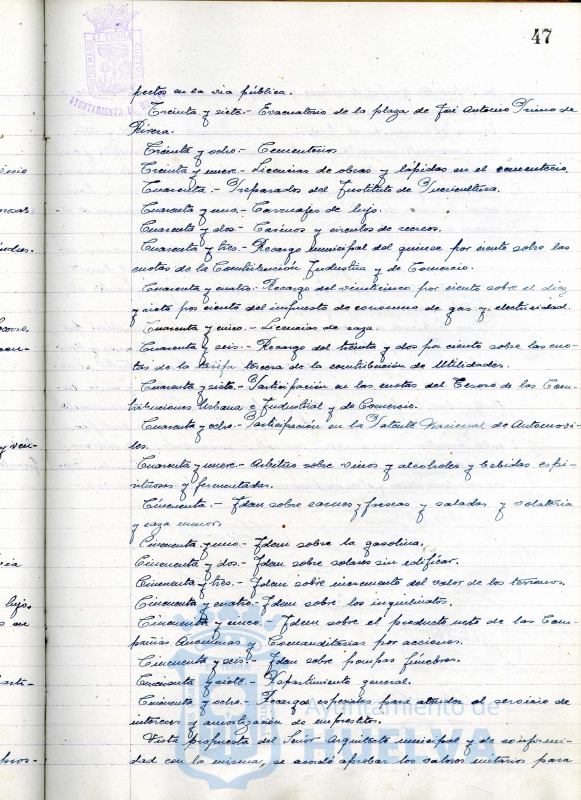 47
AYUNTAMIENTO DE
pectos en la via pública.
Treinta y siete.- Evacuatorio de la plaza de José Antonio Primo de
Rivera.
Treinta y ocho.- Cementerios
Treinta y nueve.- Licencias de obras y lápidas en el cementerio.
Cuarenta.- Preparados del Instituto de Puericultura.
Cuarenta y uno.- Carruajes de lujo.
Cuarenta y dos.- Casinos y circulos de recreo.
Cuarenta y tres.- Recargo municipal del quince por ciento sobre las
cuotas de la Contribución Industria y de Comercio.
Cuarenta y cuatro.- Recargo del veinticinco por ciento sobre el diez
y siete por ciento del impuesto de consumo de gas y electricidad.
Cuarenta y cinco.- Licencias de caza.
Cuarenta y seis.- Recargo del treinta y dos por ciento sobre las cuo-
tas de la tarifa tercera de la contribución de Utilidades.
Cuarenta y siete.- Participación en las cuotas del Tesoro de las Con-
tribuciones Urbana e Industrial y de Comercio.
Cuarenta y ocho.- Participación en la Patente Nacional de Automovi-
les.
Cuarenta y nueve.- Arbitrios sobre vinos y alcoholes y bebidas espi-
rituosas y fermentadas.
Cincuenta.- Idem sobre carnes y frescas y saladas y volateria
y caza menor.
Cincuenta y uno.- Idem sobre la gasolina.
Cincuenta y dos.- Idem sobre solares sin edificar.
Cincuenta y tres.- Idem sobre incremento del valor de los terrenos.
Cincuenta y cuatro.- Idem sobre los inquilinatos.
Cincuenta y cinco.- Idem sobre el producto neto de las Com-
pañias Anonimas y Comanditarias por acciones.
Cincuenta y seis.- Idem sobre pompas fúnebres.
Cincuenta y siete.- Repartimiento general.
Cincuenta y ocho.- Recargo especial para atender al servicio de
intereses y amortización de empréstitos.
Vista propuesta del Señor Arquitecto municipal y de conformi-
dad con la misma, se acordó aprobar los valores unitarios para
Ayuntamiento de
HUELVA